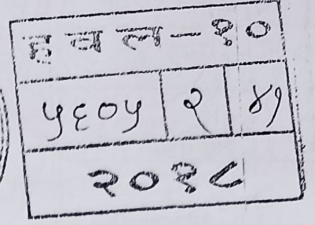 हवल-१०
५६०५ २ ४१
२०१८